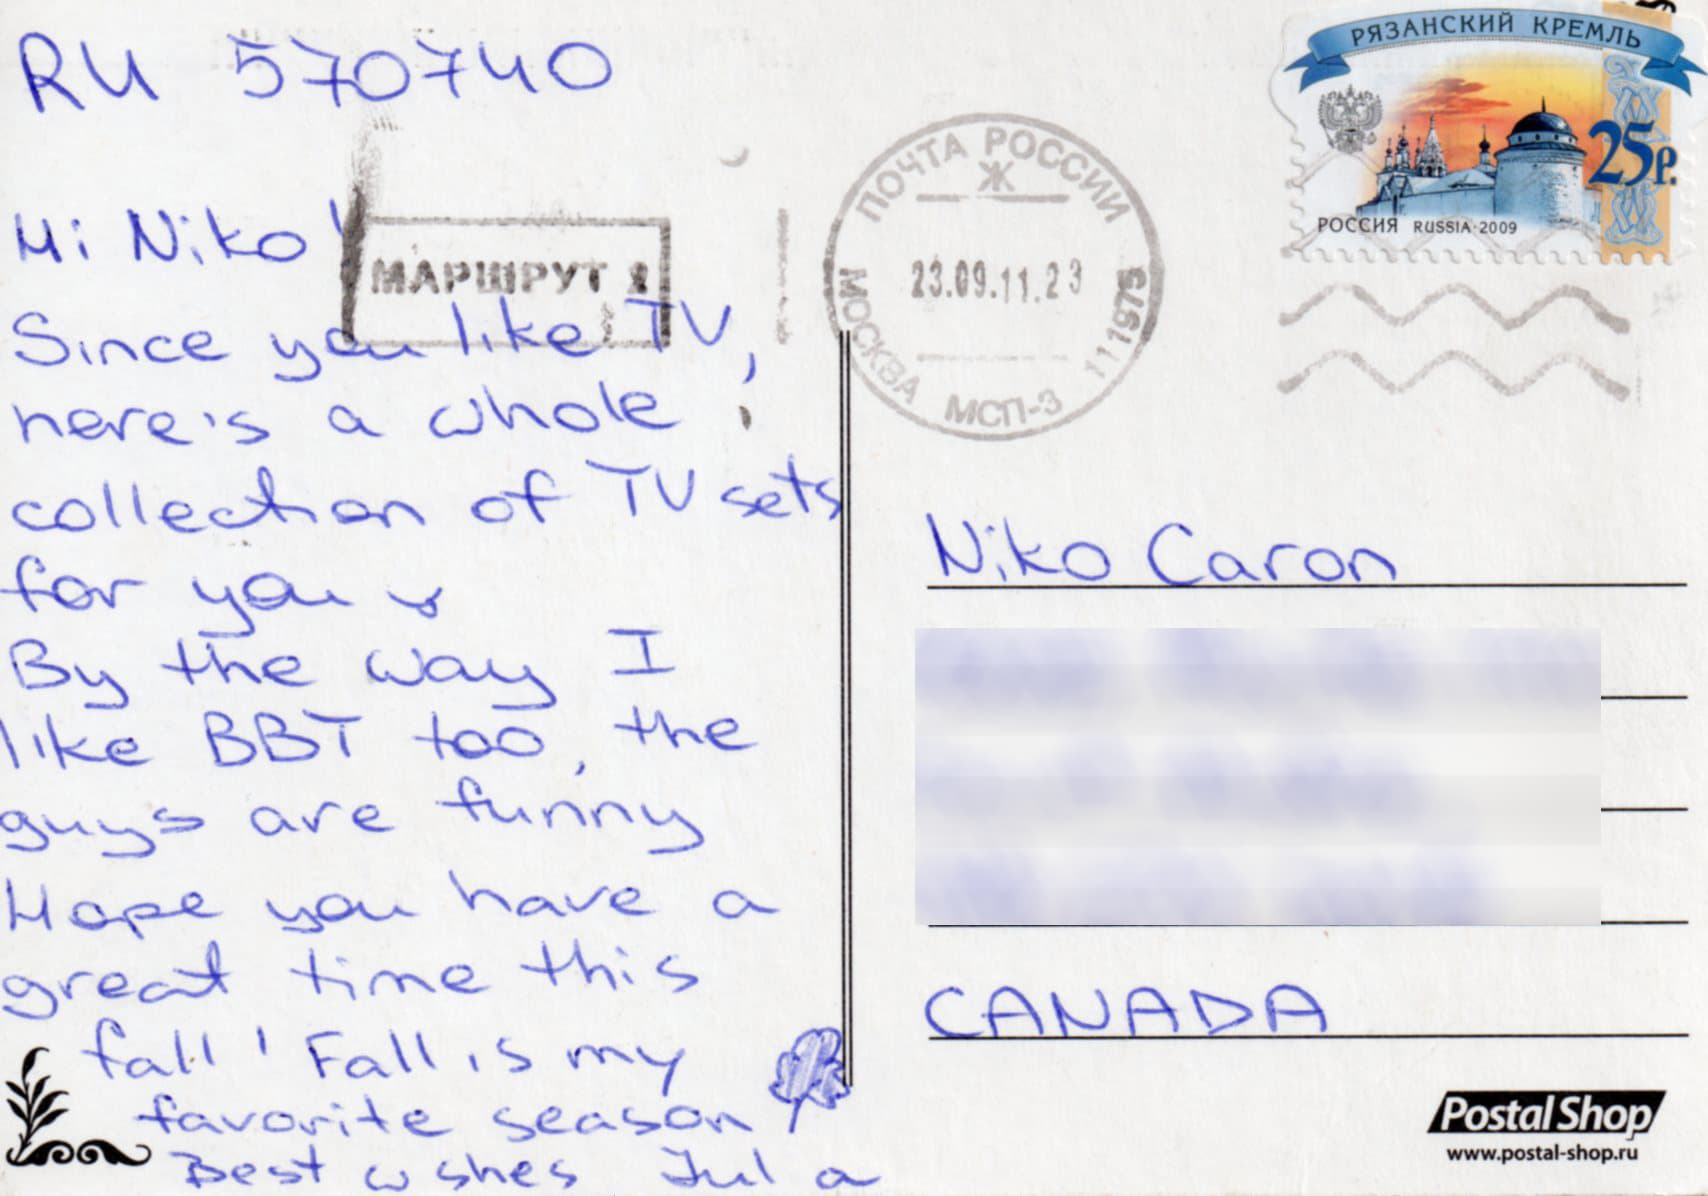 RU 570740
Hi Niko!
Since you like TV,
here's a whole
collection of TV sets
for you
By the way I
like BBT too, the
guys are funny
Hope you have a
great time this
fall! Fall is my
favorite season
Best wishes Julia
МАРШРУТ
ПОЧТА РОССИИ
Ж
23.09.11.23
МОСКВА МСП-3 111975
РЯЗАНСКИЙ КРЕМЛЬ
25р.
РОССИЯ RUSSIA·2009
Niko Caron
CANADA
Postal Shop
www.postal-shop.ru